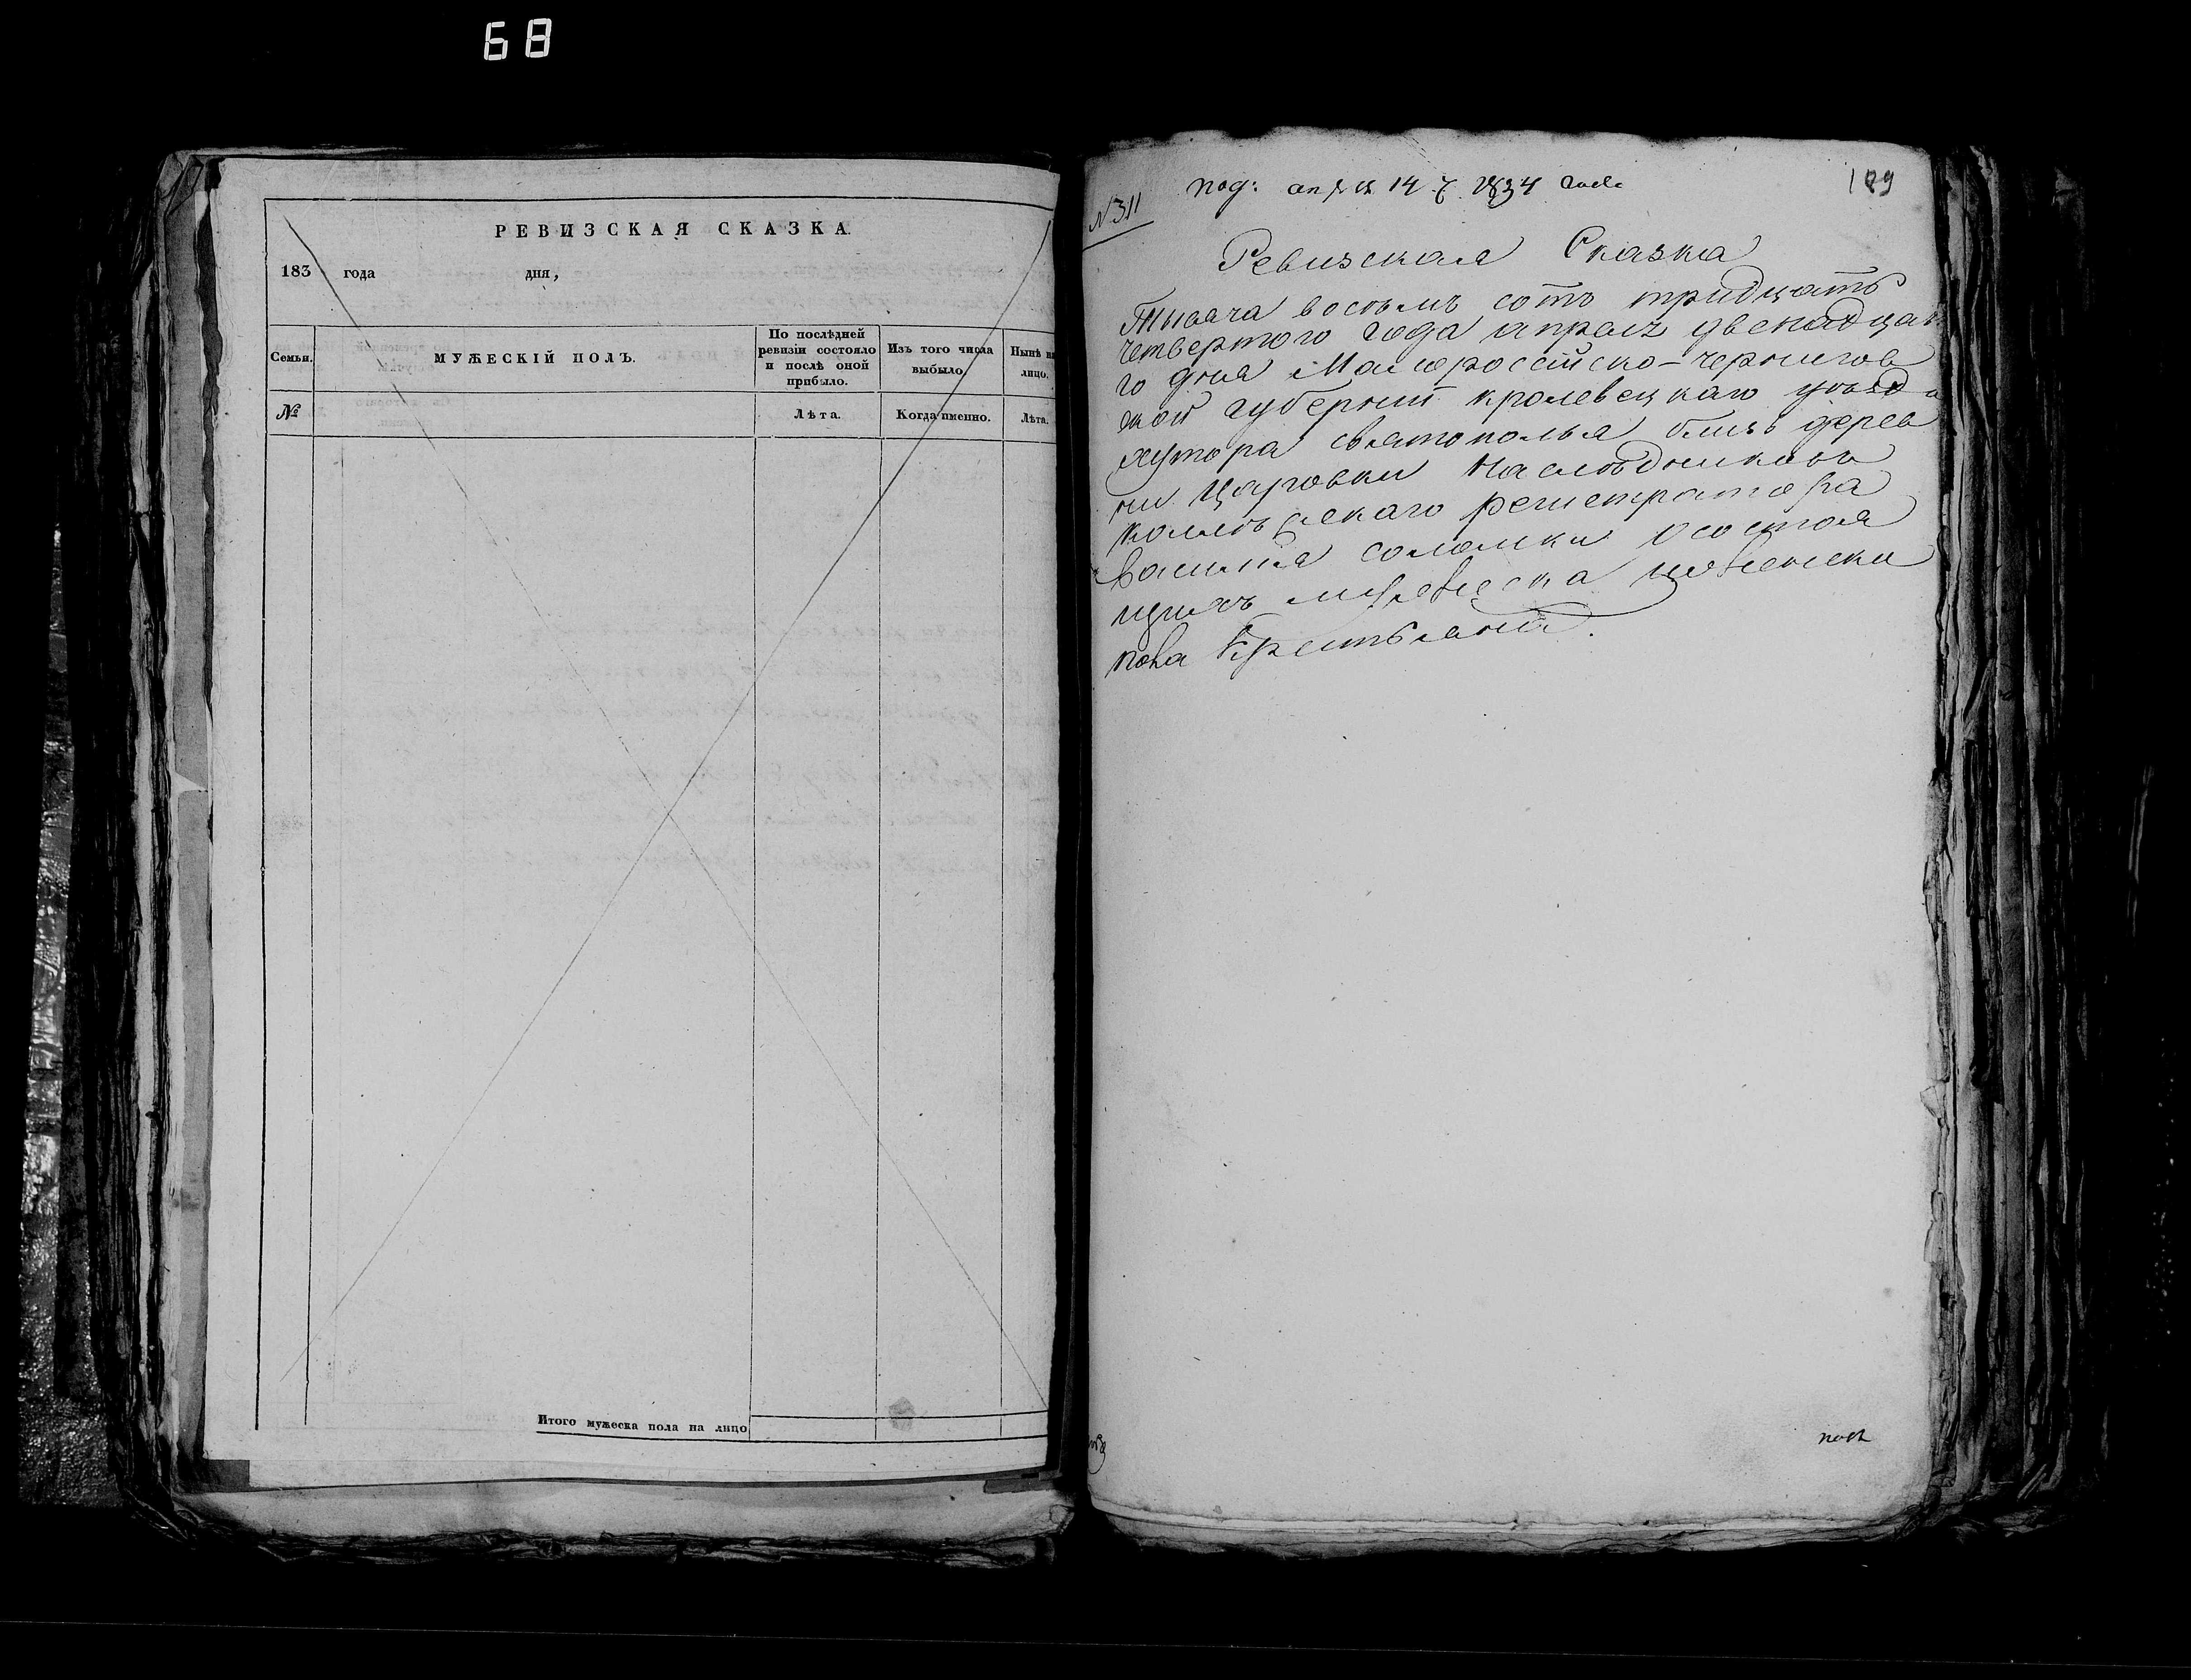 68
РЕВИЗСКАЯ СКАЗКА.
183 года дня,
Семьи.
МУЖЕСКІЙ ПОЛЪ.
По послѣдней
ревизіи состояло
и послѣ оной
прибыло.
Изъ того числа
выбыло.
Нынѣ на
лицо.
№
Лѣта.
Когда именно.
Лѣта.
Итого мужеска пола на лицо
№311
под: 14 1834 года
Ревизская Сказка
Тысяча восѣмъ сотъ тридцатъ
четвертого года апрелъ двенадца
го дня Малороссійско-чернигов
ской губерніи кролевецкаго уѣзда
хутора святополья близъ дерев
ни Царовки наслѣдникови
регистратора
василія соломки о состоя
щихъ мужеска и женска
пола крестьянъ.